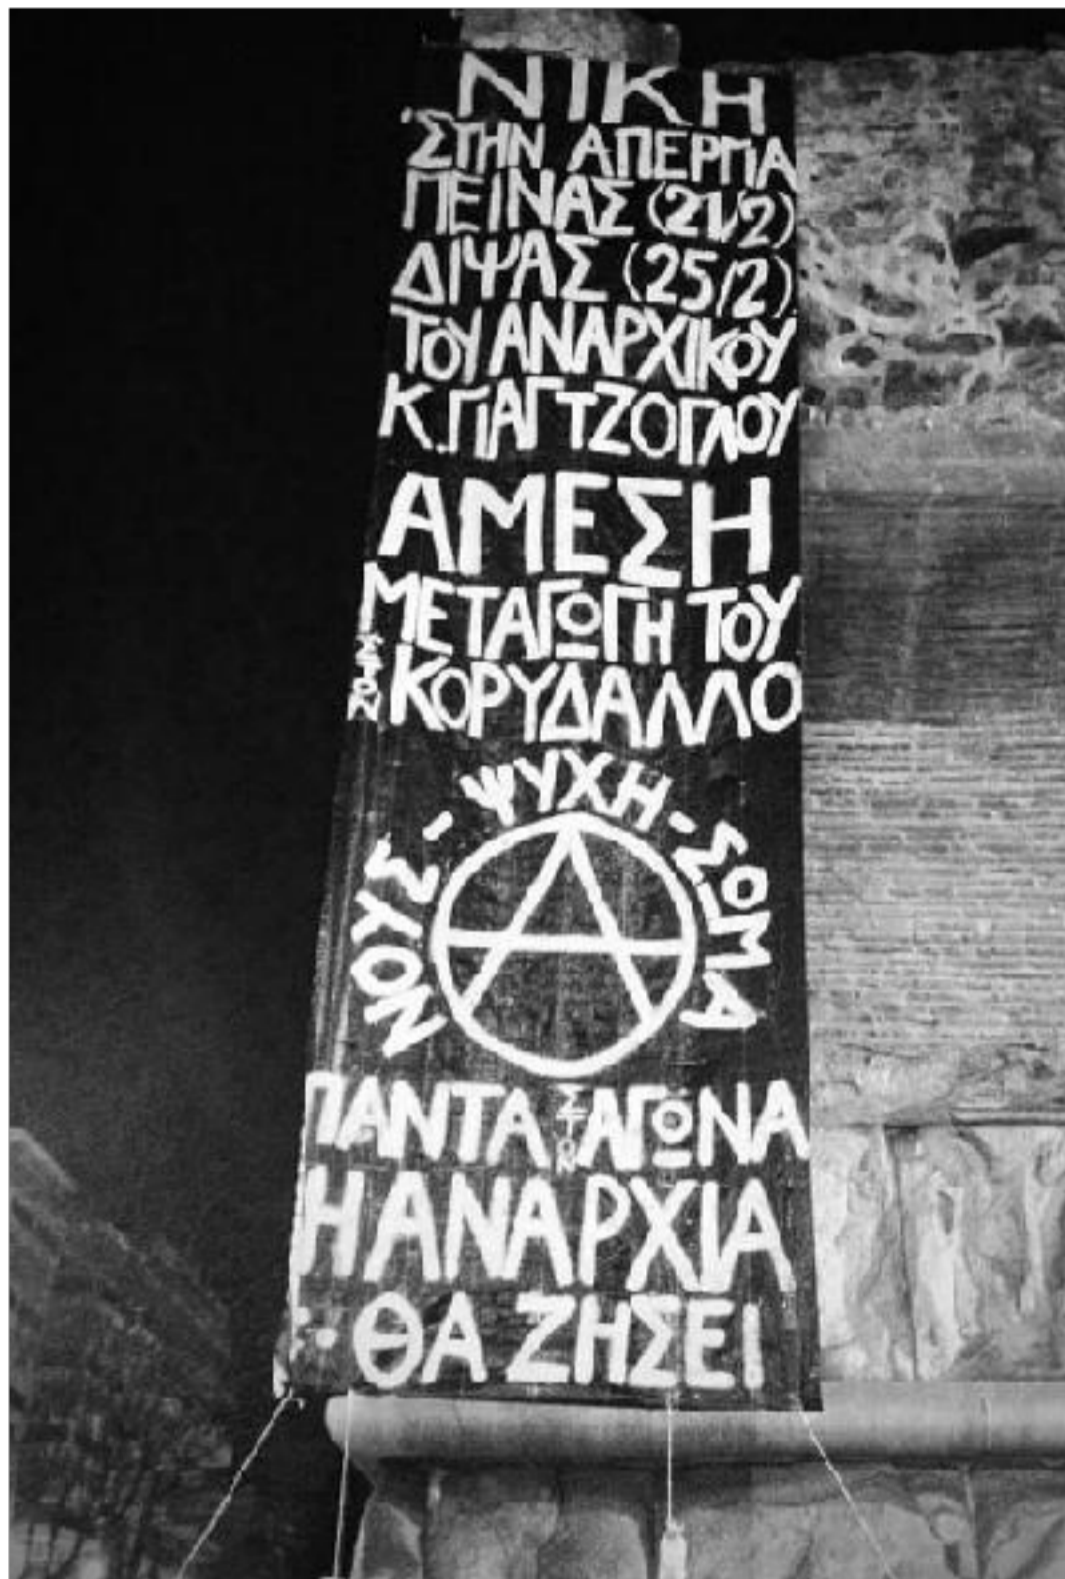 ΝΙΚΗ
ΣΤΗΝ ΑΠΕΡΓΙΑ
ΠΕΙΝΑΣ (21/2)
ΔΙΨΑΣ (25/2)
ΤΟΥ ΑΝΑΡΧΙΚΟΥ
Κ. ΓΙΑΓΤΖΟΓΛΟΥ
ΑΜΕΣΗ
ΜΕΤΑΓΩΓΗ ΤΟΥ
ΣΤΟΝ ΚΟΡΥΔΑΛΛΟ
ΝΟΥΣ - ΨΥΧΗ - ΣΩΜΑ
Α
ΠΑΝΤΑ ΣΤΟΝ ΑΓΩΝΑ
Η ΑΝΑΡΧΙΑ
ΘΑ ΖΗΣΕΙ